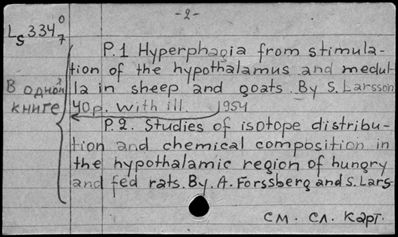 -2-
Ls 334 0/7
P.1 Hyperphagia from stimula-
tion of the hypothalamus and medul-
la in sheep and goats. By S. Larsson
40p. with ill. 1954
В одной
книге
P.2. Studies of isotope distribu-
tion and chemical composition in
the hypothalamic region of hungry
and fed rats. By. A. Forssberg and S. Lars-
см. сл. карт.